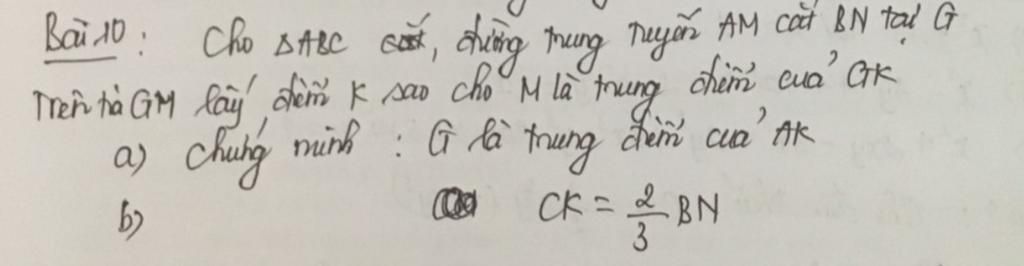 Bài 10 : Cho ΔABC, đường trung tuyến AM cắt BN tại G
Trên tia GM lấy điểm K sao cho M là trung điểm của GK
a) Chứng minh : G là trung điểm của AK
b) CK = 2/3 BN